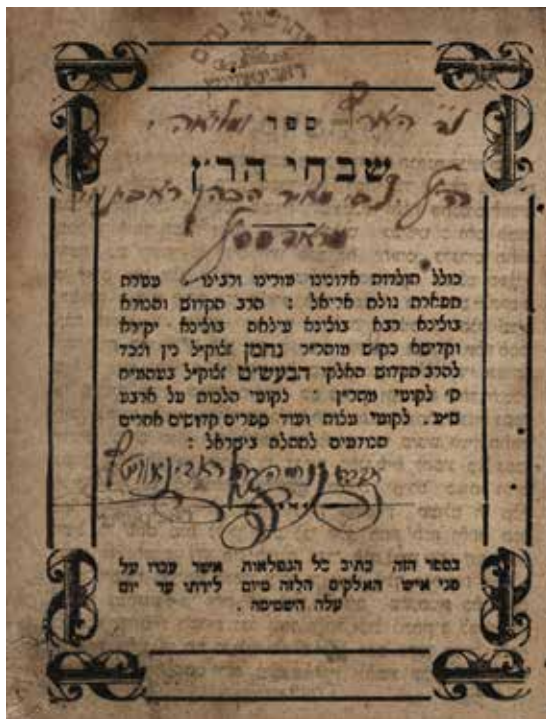 ספר
שבחי הר"ן
מאיר הכהן
כולל תולדות אדונינו מורינו ורבינו . עטרת
תפארת גולת אריאל : הרב הקדוש והנורא
בוצינא רבא בוצינא עילאה בוצינא יקירא
וקדישא כקש"ת מוהר"ר נחמן זצוקי"ל נין ונכד
להרב הקדוש האלקי הבעש"ט זצוקי"ל בעהמ"ח
ס' לקוטי מהר"ן : לקוטי הלכות על ארבע
ש"ע. לקוטי עצות ועוד ספרים קדושים אחרים
הנודעים לתהלה בישראל :
בספר הזה כתוב כל הנפלאות אשר עברו על
פני איש האלקים הלזה מיום לידתו עד יום
עלה השמימה .